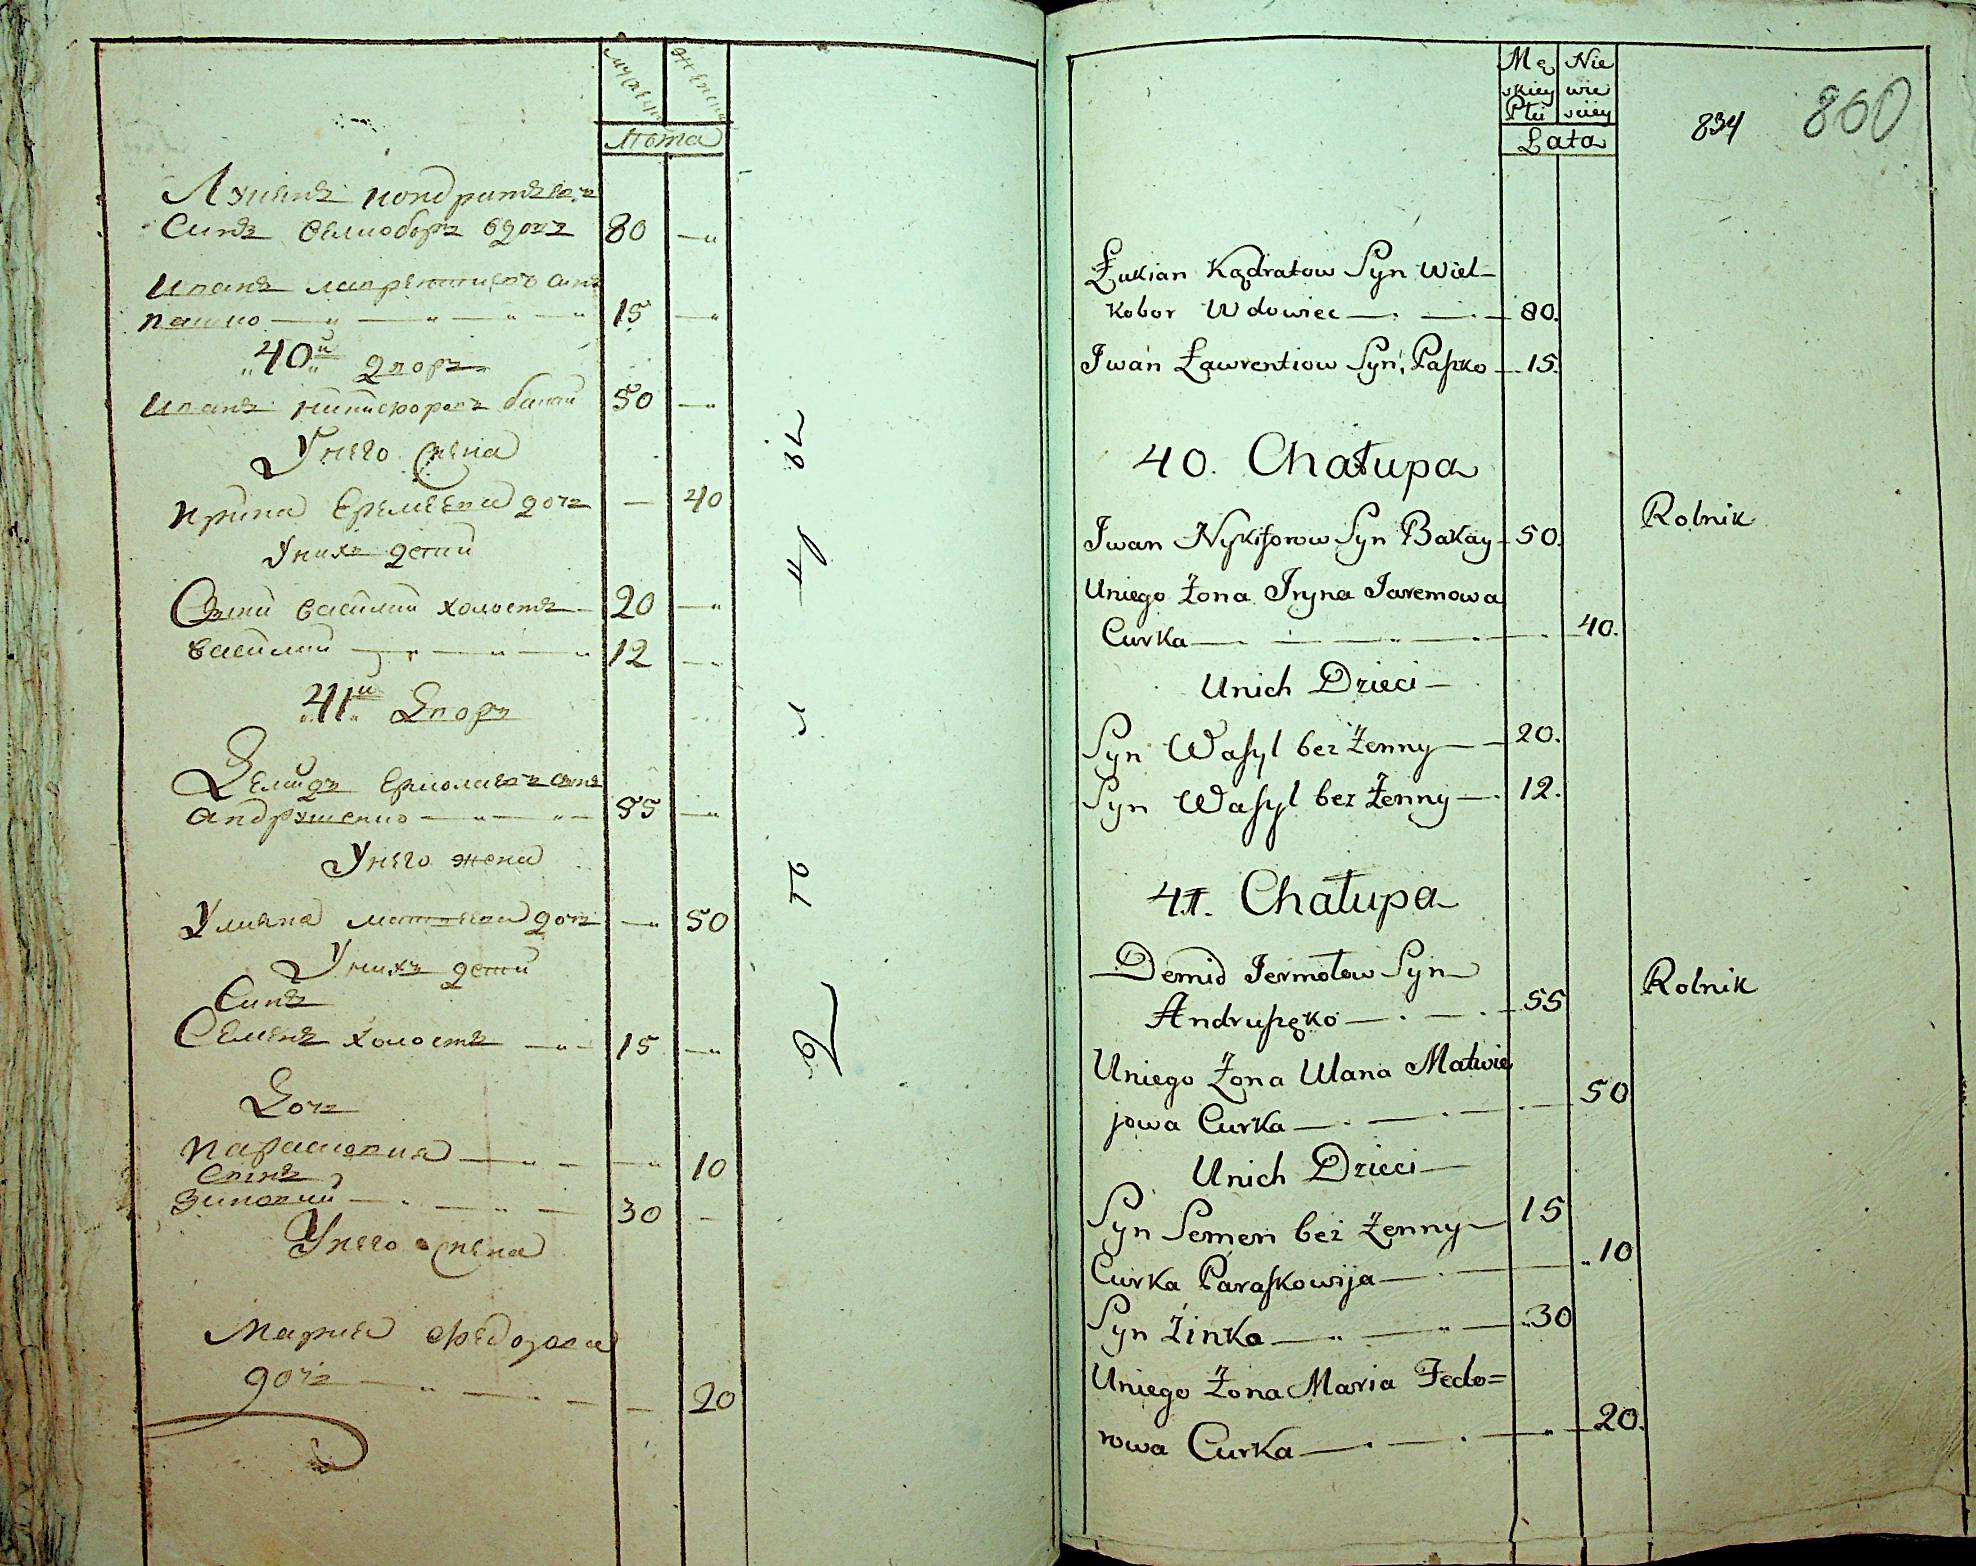 Лѣта
Синъ Велиоборъ вдовъ 80
Иванъ Лаврентиевъ синъ
Пашко 15
40й Дворъ
Иванъ Никифоровъ Бакай 50
У него жена
Ирина Еремеева дочъ 40
У нихъ дети
Сыни Василий холостъ 20
Василий 12
41й Дворъ
Демидъ Ермолаевъ синъ
Андрушенко 55
У него жена
Улияна дочъ 50
У нихъ дети
Синъ
Семенъ холостъ 15
Дочъ
Парасковия 10
Синъ
Зиновий 30
У него жена
Мария Федорова
дочъ 20
Mę Nie
skiey wie
Płci sciey
Łata
834 860
Łukian Kądratow Syn Wiel-
kobor Wdowiec 80.
Iwan Ławrentiow Syn Paszko 15.
40. Chałupa
Iwan Nykiforow Syn Bakay 50. Rolnik
Uniego Żona Iryna Jaremowa
Curka 40.
Unich Dzieci
Syn Wasyl bez Żenny 20.
Syn Wasyl bez Żenny 12.
41. Chałupa
Demid Jermołow Syn Rolnik
Andruszęko 55
Uniego Żona Ulana Matwie
jowa Curka 50
Unich Dzieci
Syn Semen bez Żenny 15
Curka Paraskowija 10
Syn Żinko 30
Uniego Żona Maria Fedo=
rowa Curka 20.